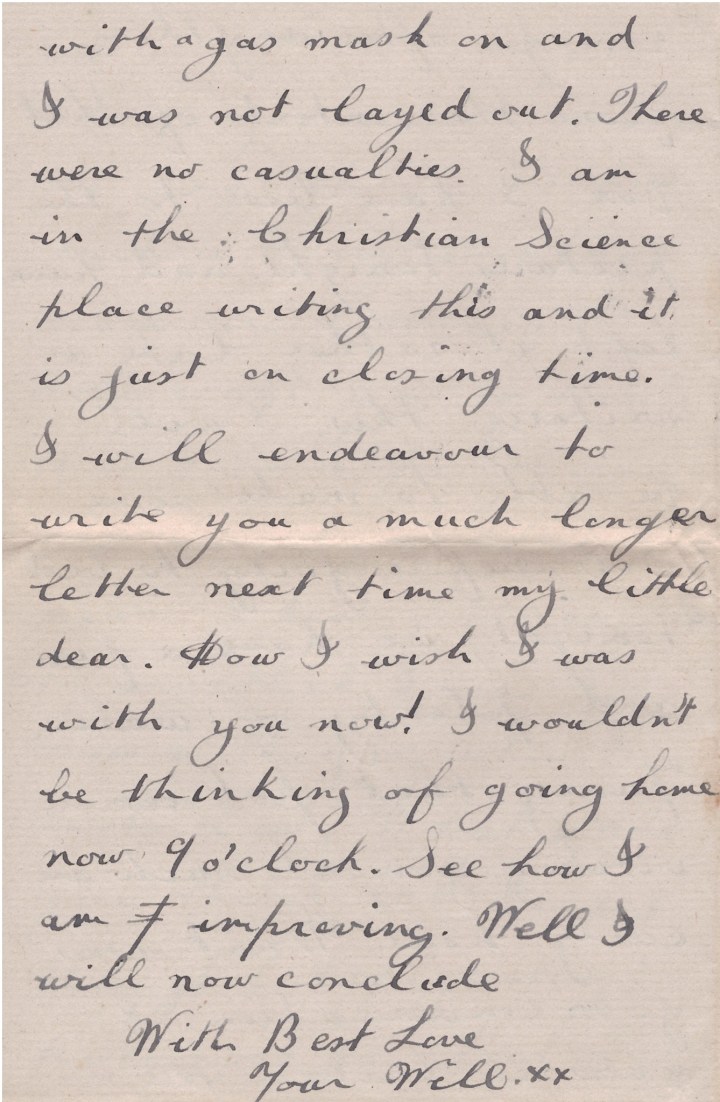 with a gas mask on and
I was not layed out. There
were no casualties. I am
in the Christian Science
place writing this and it
is just on closing time.
I will endeavour to
write you a much longer
letter next time my little
dear. How I wish I was
with you now! I wouldn't
be thinking of going home
now 9 o'clock. See how I
am improving. Well I
will now conclude
With Best Love
Your Will. xx